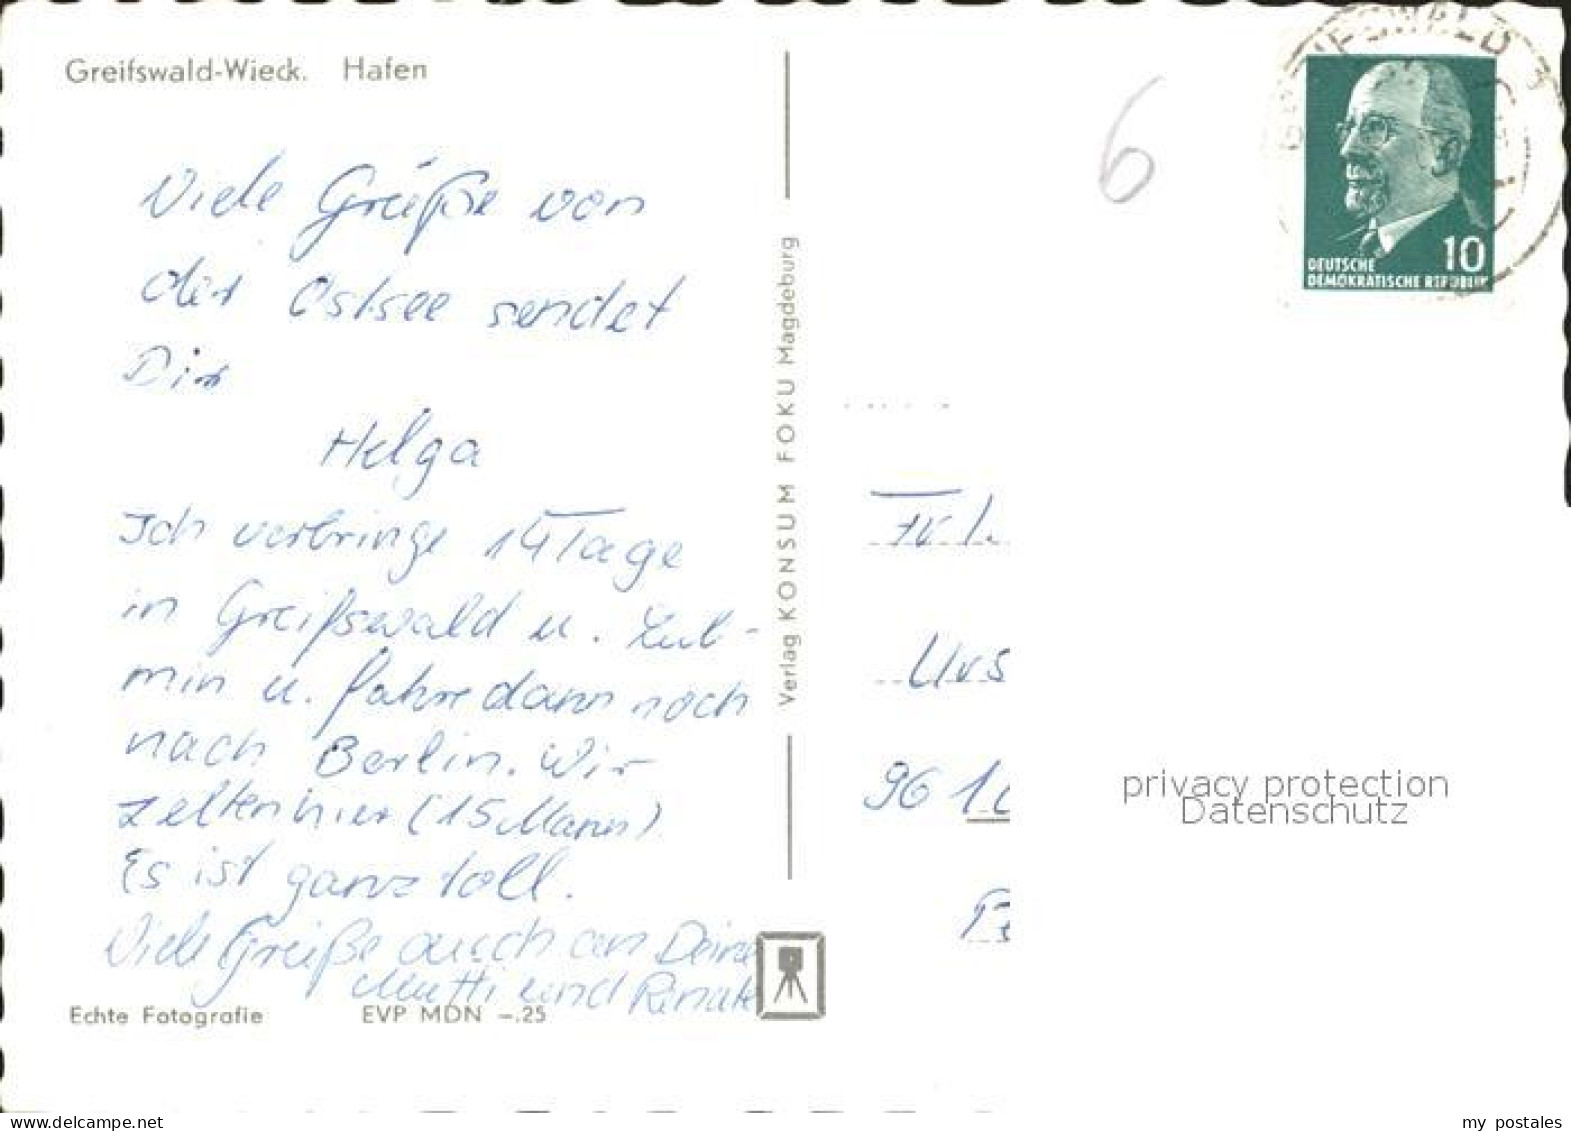 Greifswald-Wieck. Hafen
Viele Grüße von
der Ostsee sendet
Dir
Helga
Ich verbringe 14 Tage
in Greifswald u. Lub-
min u. fahre dann noch
nach Berlin. Wir
zelten hier (15 Mann).
Es ist ganz toll.
Viele Grüße auch an Deine
Mutti und Renate
Echte Fotografie EVP MDN –.25
Verlag KONSUM FOKU Magdeburg
6
GREIFSWALD
10
DEUTSCHE
DEMOKRATISCHE REPUBLIK
Urs
961
privacy protection
Datenschutz
delcampe.net
my_postales